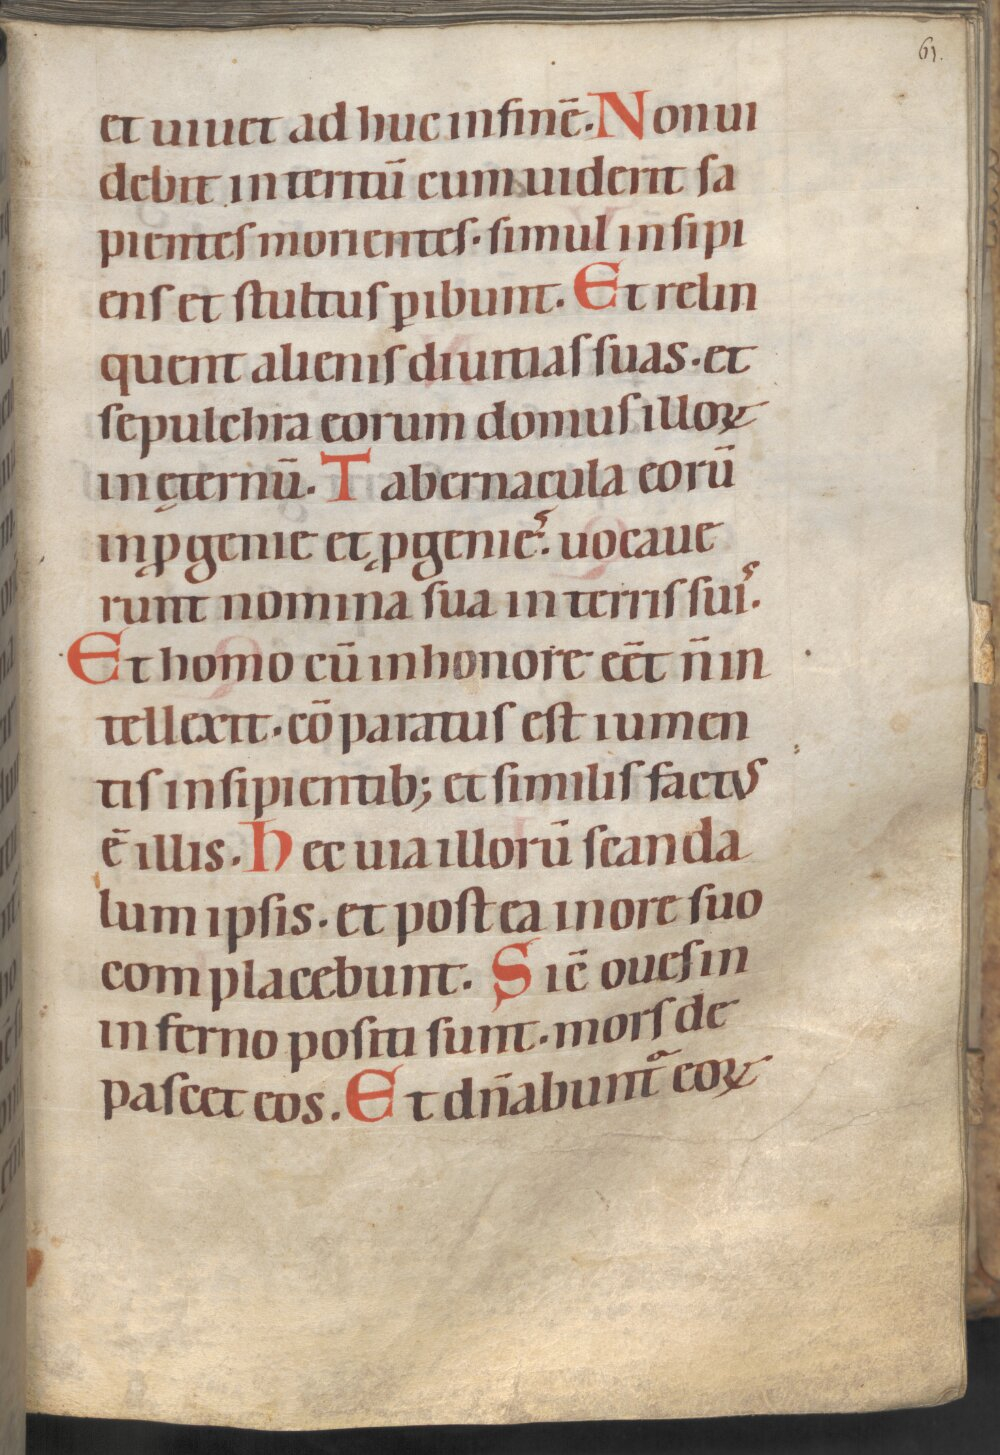 61.
et uiuet ad huc in finē. Non ui
debit interitū cum uiderit sa
pientes morientes. simul insipi
ens et stultus ꝑibunt. Et relin
quent alienis diuitias suas. et
sepulchra eorum domus illoꝝ
in ęternū. Tabernacula eorū
in ꝓgenie et ꝓgenieˢ. uocaue
runt nomina sua in terris suiˢ.
Et homo cū in honore eēt n̄ in
tellexit. cōparatus est iumen
tis insipientib; et similis factus
ē illis. hec uia illorū scanda
lum ipsis. et postea in ore suo
complacebunt. Sic̄ oues in
inferno positi sunt. mors de
pascet eos. Et dn̄abunt᷑ eoꝝ